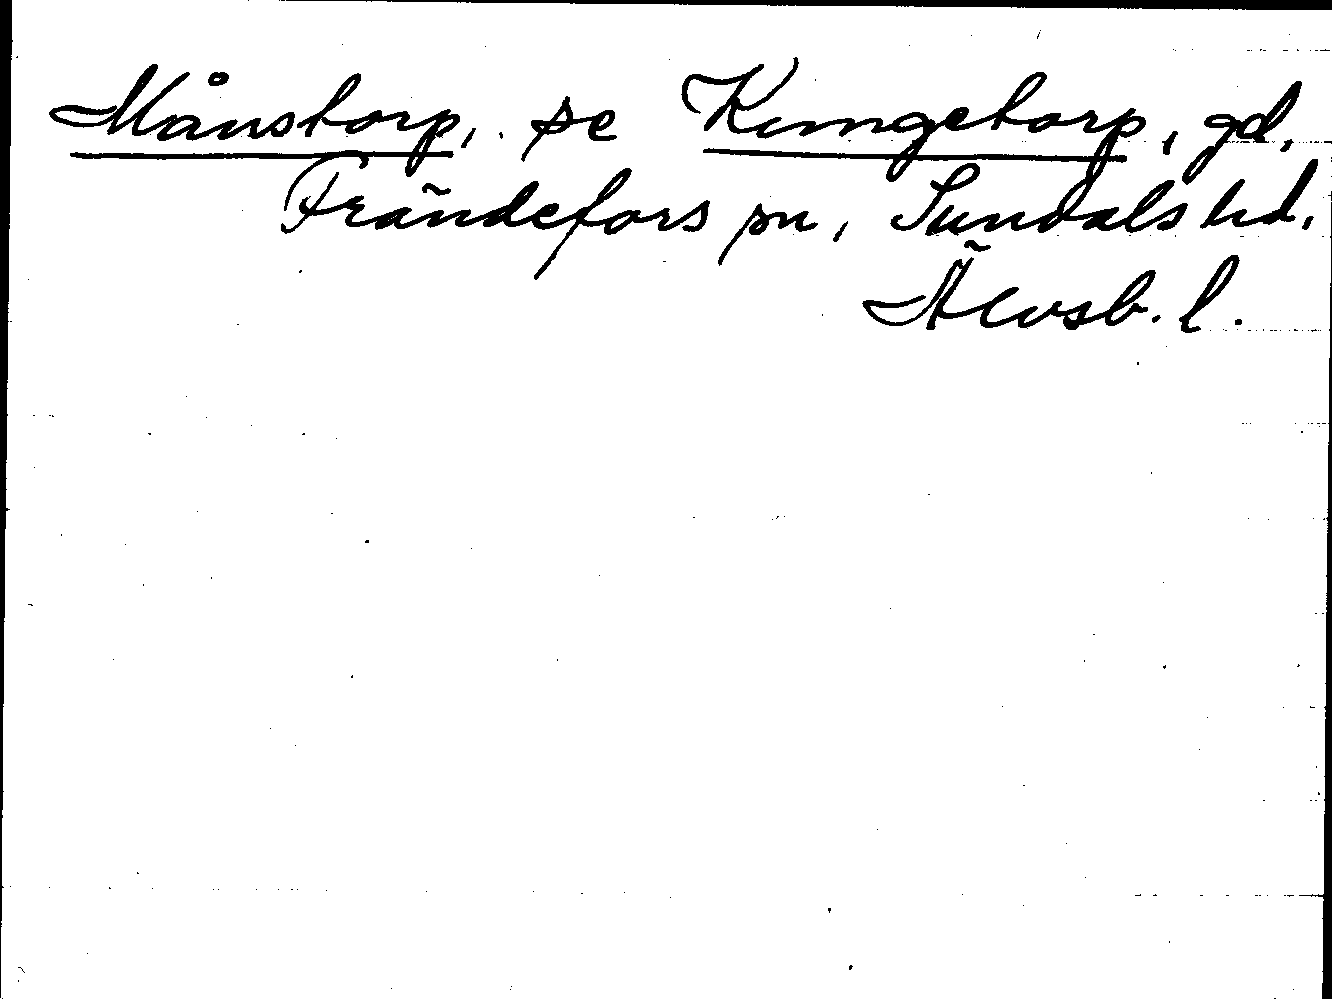 Månstorp, se Kungetorp, gd,
Frändefors sn, Sundals hd,
Älvsb. l.